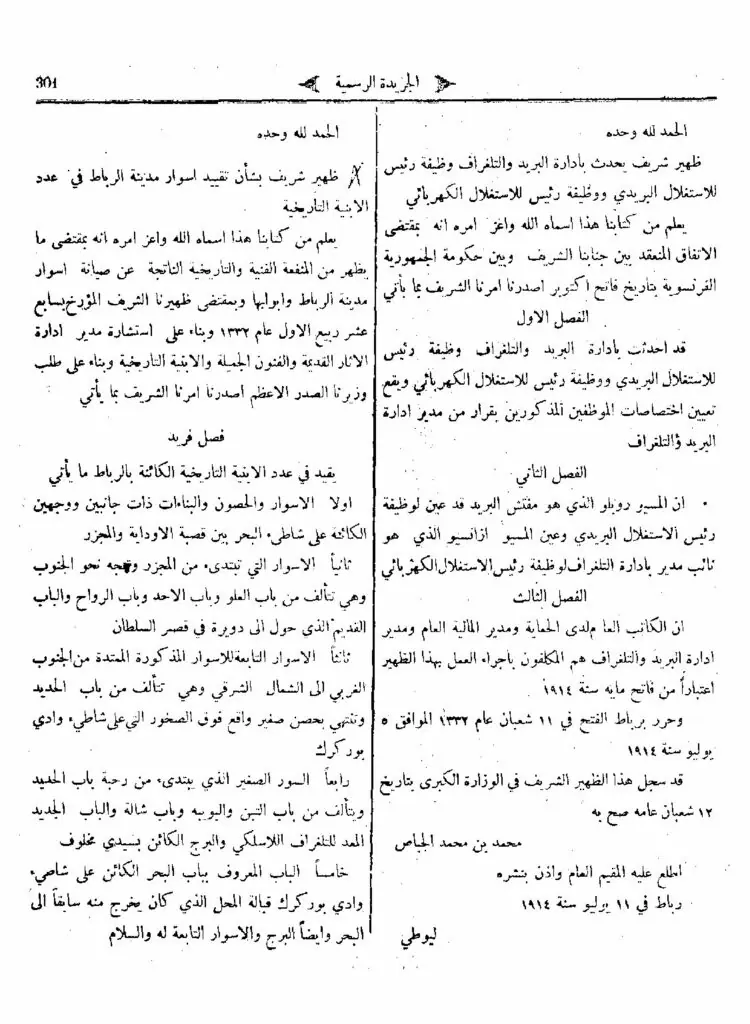 301
الجريدة الرسمية
الحمد لله وحده
ظهير شريف يحدث بادارة البريد والتلغراف وظيفة رئيس
للاستغلال البريدي ووظيفة رئيس للاستغلال الكهربائي
يعلم من كتابنا هذا اسماه الله واعز امره انه بمقتضى
الاتفاق المنعقد بين جنابنا الشريف وبين حكومة الجمهورية
الفرنسوية بتاريخ فاتح اكتوبر اصدرنا امرنا الشريف بما يأتي
الفصل الاول
قد احدثت بادارة البريد والتلغراف وظيفة رئيس
للاستغلال البريدي ووظيفة رئيس للاستغلال الكهربائي ويقع
تعيين اختصاصات الموظفين المذكورين بقرار من مدير ادارة
البريد والتلغراف
الفصل الثاني
ان المسيو روبلو الذي هو مفتش البريد قد عين لوظيفة
رئيس الاستغلال البريدي وعين المسيو ازانسيو الذي هو
نائب مدير بادارة التلغراف لوظيفة رئيس الاستغلال الكهربائي
الفصل الثالث
ان الكاتب العام لدى الحماية ومدير المالية العام ومدير
ادارة البريد والتلغراف هم المكلفون باجراء العمل بهذا الظهير
اعتباراً من فاتح مايه سنة ١٩١٤
وحرر برباط الفتح في ١١ شعبان عام ١٣٣٢ الموافق ٥
يوليو سنة ١٩١٤
قد سجل هذا الظهير الشريف في الوزارة الكبرى بتاريخ
١٢ شعبان عامه صح به
محمد بن محمد الجباص
اطلع عليه المقيم العام واذن بنشره
رباط في ١١ يوليو سنة ١٩١٤
ليوطي
الحمد لله وحده
ظهير شريف بشأن تقييد اسوار مدينة الرباط في عدد
الابنية التاريخية
يعلم من كتابنا هذا اسماه الله واعز امره انه بمقتضى ما
يظهر من المنفعة الفنية والتاريخية الناتجة عن صيانة اسوار
مدينة الرباط وابوابها وبمقتضى ظهيرنا الشريف المؤرخ بسابع
عشر ربيع الاول عام ١٣٣٢ وبناء على استشارة مدير ادارة
الاثار القديمة والفنون الجميلة والابنية التاريخية وبناء على طلب
وزيرنا الصدر الاعظم اصدرنا امرنا الشريف بما يأتي
فصل فريد
يقيد في عدد الابنية التاريخية الكائنة بالرباط ما يأتي
اولا الاسوار والحصون والبناءات ذات جانبين ووجهين
الكائنة على شاطىء البحر بين قصبة الاوداية والمجزر
ثانياً الاسوار التي تبتدىء من المجزر وتتجه نحو الجنوب
وهي تتألف من باب العلو وباب الاحد وباب الرواح والباب
القديم الذي حول الى دويرة في قصر السلطان
ثالثاً الاسوار التابعة للاسوار المذكورة الممتدة من الجنوب
الغربي الى الشمال الشرقي وهي تتألف من باب الحديد
وتنتهي بحصن صغير واقع فوق الصخور التي على شاطىء وادي
بور كرك
رابعاً السور الصغير الذي يبتدىء من رحبة باب الحديد
ويتألف من باب التبن والبويبه وباب شالة والباب الجديد
المعد للتلغراف اللاسلكي والبرج الكائن بسيدي مخلوف
خامساً الباب المعروف بباب البحر الكائن على شاطىء
وادي بور كرك قبالة المحل الذي كان يخرج منه سابقاً الى
البحر وايضاً البرج والاسوار التابعة له والسلام